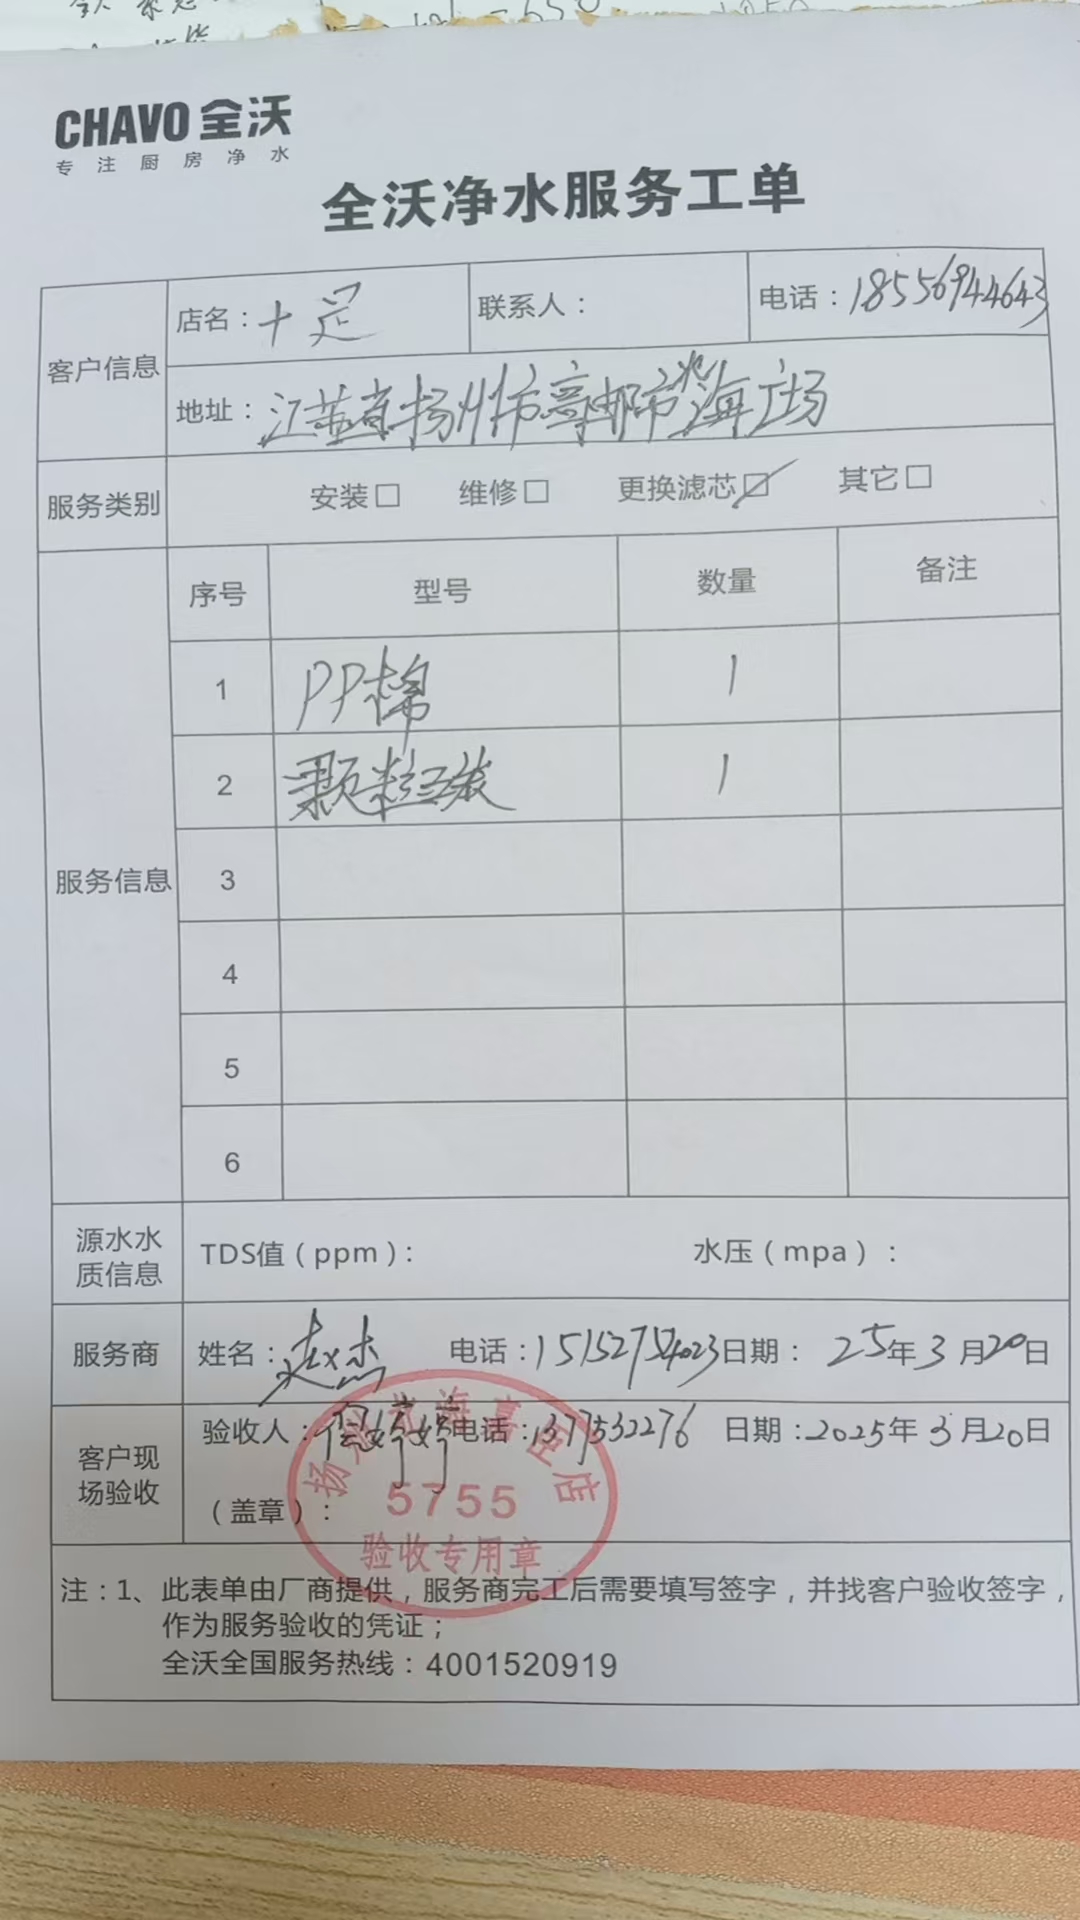 CHAVO 全沃
专注厨房净水
全沃净水服务工单
客户信息
店名：十足 联系人： 电话：18556944643
地址：江苏省扬州市高邮市 海广场
服务类别 安装□ 维修□ 更换滤芯☑ 其它□
服务信息
序号 型号 数量 备注
1 PP棉 1
2 颗粒 1
3
4
5
6
源水水质信息 TDS值（ppm）： 水压（mpa）：
服务商 姓名：赵杰 电话：日期：25年3月20日
客户现场验收
验收人： 婷婷 电话：1377532276 日期：2025年3月20日
（盖章）：
扬 海 店
5755
验收专用章
注：1、此表单由厂商提供，服务商完工后需要填写签字，并找客户验收签字，
作为服务验收的凭证；
全沃全国服务热线：4001520919